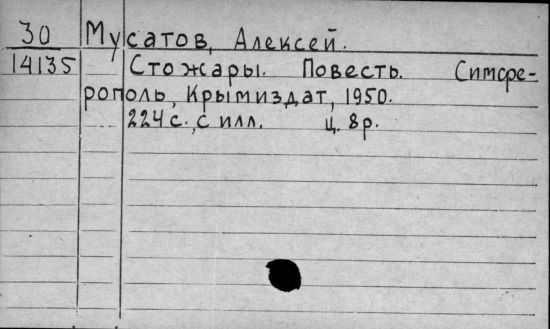 30 Мусатов, Алексей.
14135 Стожары. Повесть. Симфе-
рополь, Крымиздат, 1950.
224 с., с илл. Ц. 8 р.